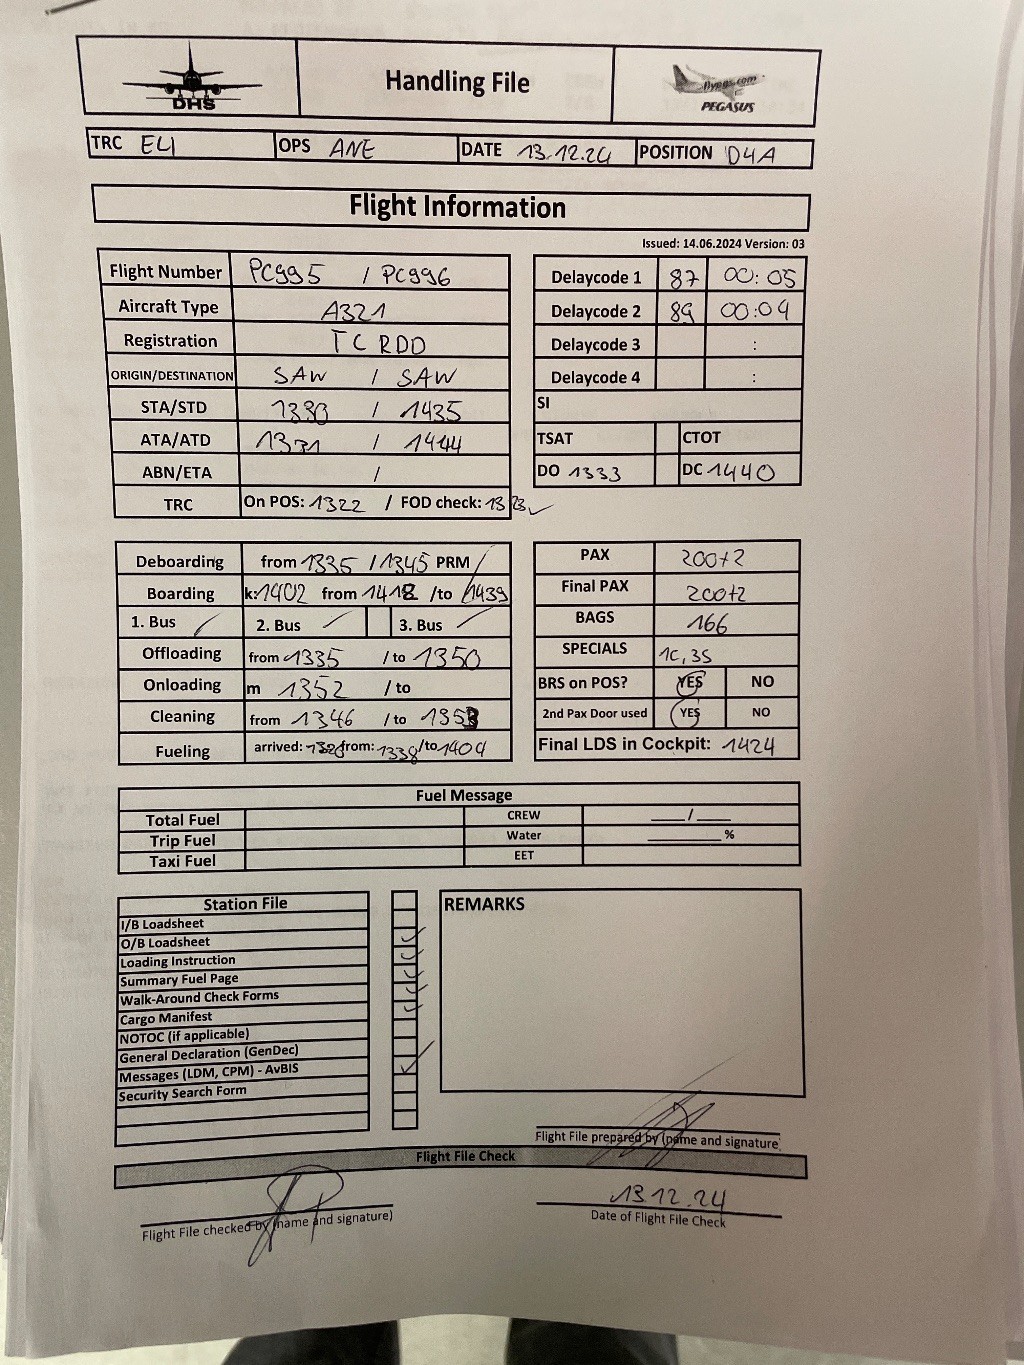 DHS
Handling File
flypgs.com
PEGASUS
TRC ELI OPS ANE DATE 13.12.24 POSITION D4A
Flight Information
Issued: 14.06.2024 Version: 03
Flight Number PC995 / PC996
Aircraft Type A321
Registration TC RDD
ORIGIN/DESTINATION SAW / SAW
STA/STD 1330 / 1435
ATA/ATD 1331 / 1444
ABN/ETA /
TRC On POS: 1322 / FOD check: 1323
Delaycode 1 87 00:05
Delaycode 2 89 00:04
Delaycode 3 :
Delaycode 4 :
SI
TSAT CTOT
DO 1333 DC 1440
Deboarding from 1335 / 1345 PRM /
Boarding k: 1402 from 1418 /to 1439
1. Bus 2. Bus 3. Bus
Offloading from 1335 /to 1350
Onloading m 1352 /to
Cleaning from 1346 /to 1353
Fueling arrived: from: 1338 /to 1404
PAX 200+2
Final PAX 200+2
BAGS 166
SPECIALS 1C, 3S
BRS on POS? YES NO
2nd Pax Door used YES NO
Final LDS in Cockpit: 1424
Fuel Message
Total Fuel CREW ___/___
Trip Fuel Water ______%
Taxi Fuel EET
Station File
I/B Loadsheet
O/B Loadsheet ✓
Loading Instruction ✓
Summary Fuel Page ✓
Walk-Around Check Forms ✓
Cargo Manifest ✓
NOTOC (if applicable)
General Declaration (GenDec)
Messages (LDM, CPM) - AvBIS ✓
Security Search Form
REMARKS
Flight File prepared by (name and signature)
Flight File Check
13.12.24
Flight File checked by (name and signature)
Date of Flight File Check